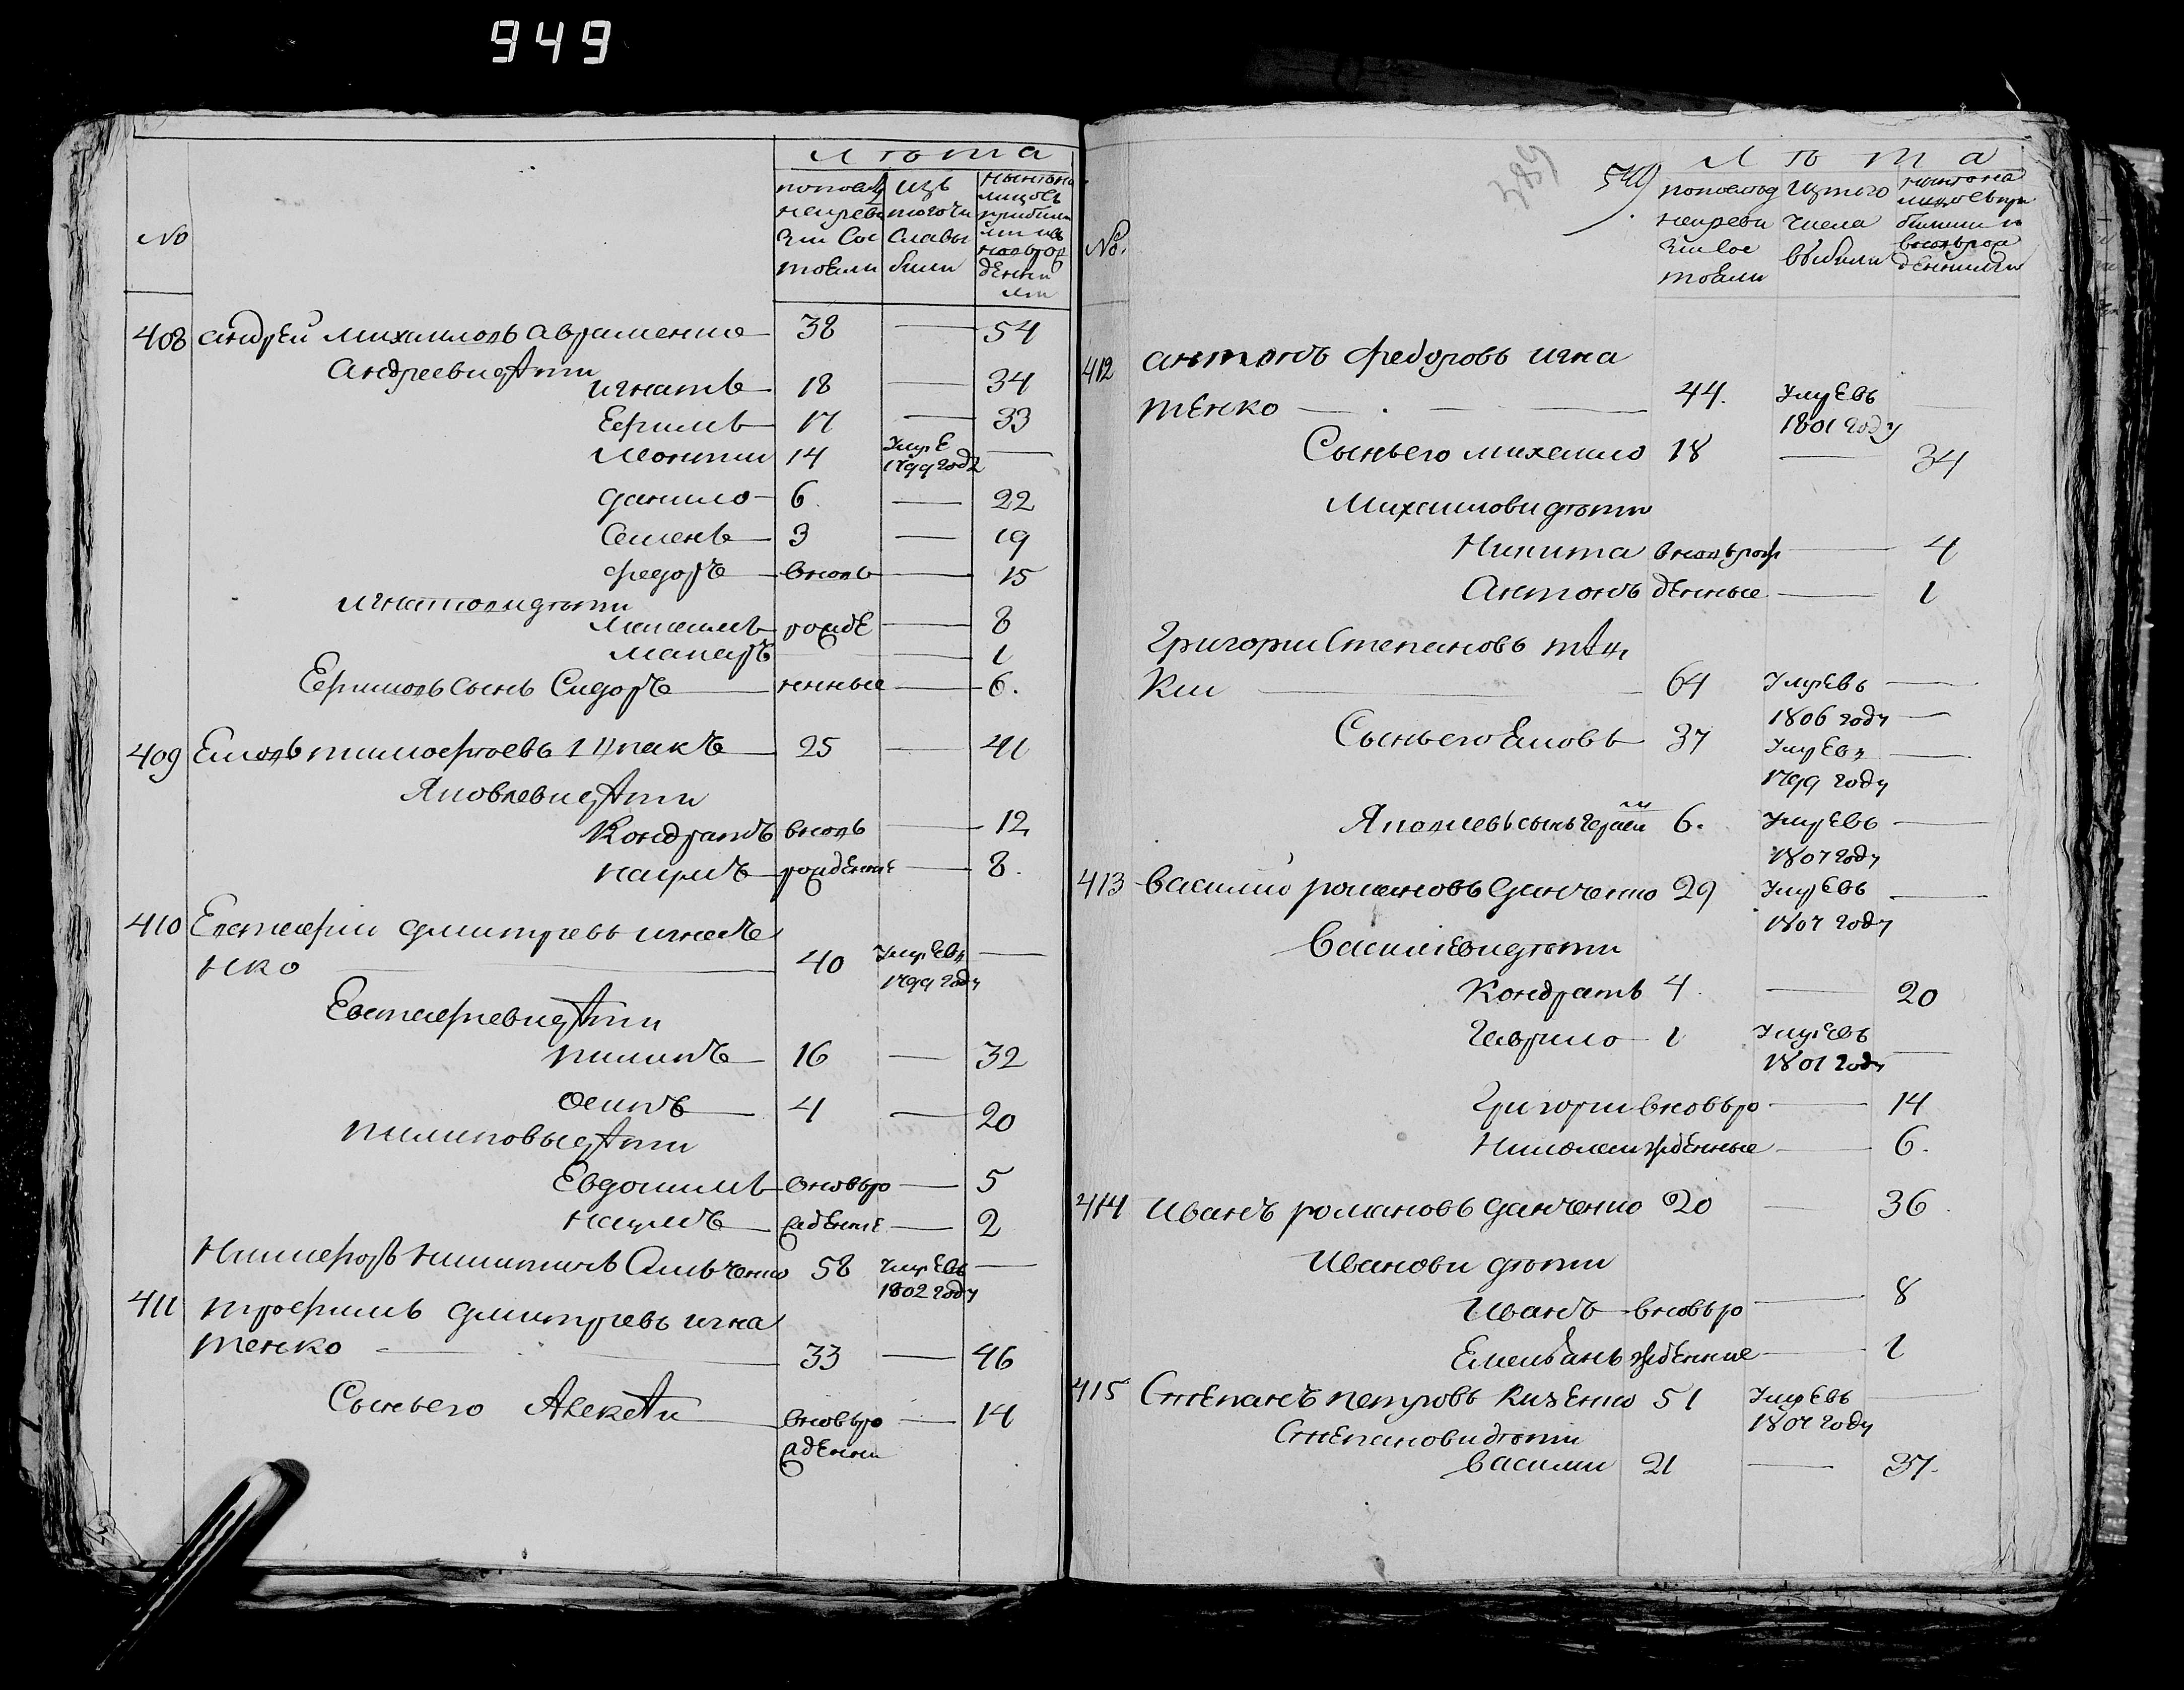 949
лѣта
№
по послѣд
ней реви
зіи сос
тояли
изъ
того чи
сла вы
были
ныне на
лицо съ
прибылы
ми и въ
новь рож
денны
ми
408 андрей михаиловъ авраменко 38 — 54
Андреевы дѣти
игнатъ 18 — 34
Ефимъ 17 — 33
14 умре 1799 году —
данило 6. — 22
Семенъ 3 — 19
федоръ вновь — 15
игнатовы дѣти
рожде — 8
макаръ — 1
Ефимовъ сынъ Сидоръ нные — 6.
409 Яковъ тимофѣевъ 25 — 41
Яковлевы дѣти
Кондратъ вновь — 12
наумъ рожденные — 8.
410 Евстафій дмитревъ игнате
нко 40 умревъ 1799 году —
Евстафьевы дѣти
пилипъ 16 — 32
осипъ 4 — 20
пилиповы дѣти
Евдокимъ вновьро — 5
наумъ жденные — 2
Никифоръ никитинъ 58 умревъ 1802 году —
411 трофимъ дмитревъ игна
тенко 33 — 46
Сынъ его Алексѣй вновьро — 14
ждены
389
549
лѣта
№.
по послѣд
ней реви
зіи сос
тояли
изъ того
числа
выбыли
ныне на
лицо съ при
былыми и
вновь рож
денными
412 антонъ федоровъ игна
тенко 44. умревъ —
1801 году
Сынъ его михаило 18 — 34
Михаиловы дѣти
Никита вновь рож — 4
Антонъ денные — 1
Григорий Степановъ
64 умревъ —
1806 году —
Сынъ его Яковъ 37 умревъ —
1799 году
Яковлевъ сынъ 6. умревъ —
1807 году
413 василий романовъ данченко 29 умревъ —
1807 году
василевы дѣти
Кондратъ 4. — 20
гаврило 1 умревъ
1801 году —
Григорий вновьро — 14
Николай жденные — 6.
414 иванъ романовъ данченко 20 — 36.
Ивановы дѣти
Иванъ вновьро — 8
Емельянъ жденные — 1
415 Степанъ петровъ 51 умревъ —
1807 году
Степановы дѣти
василий 21 — 37.